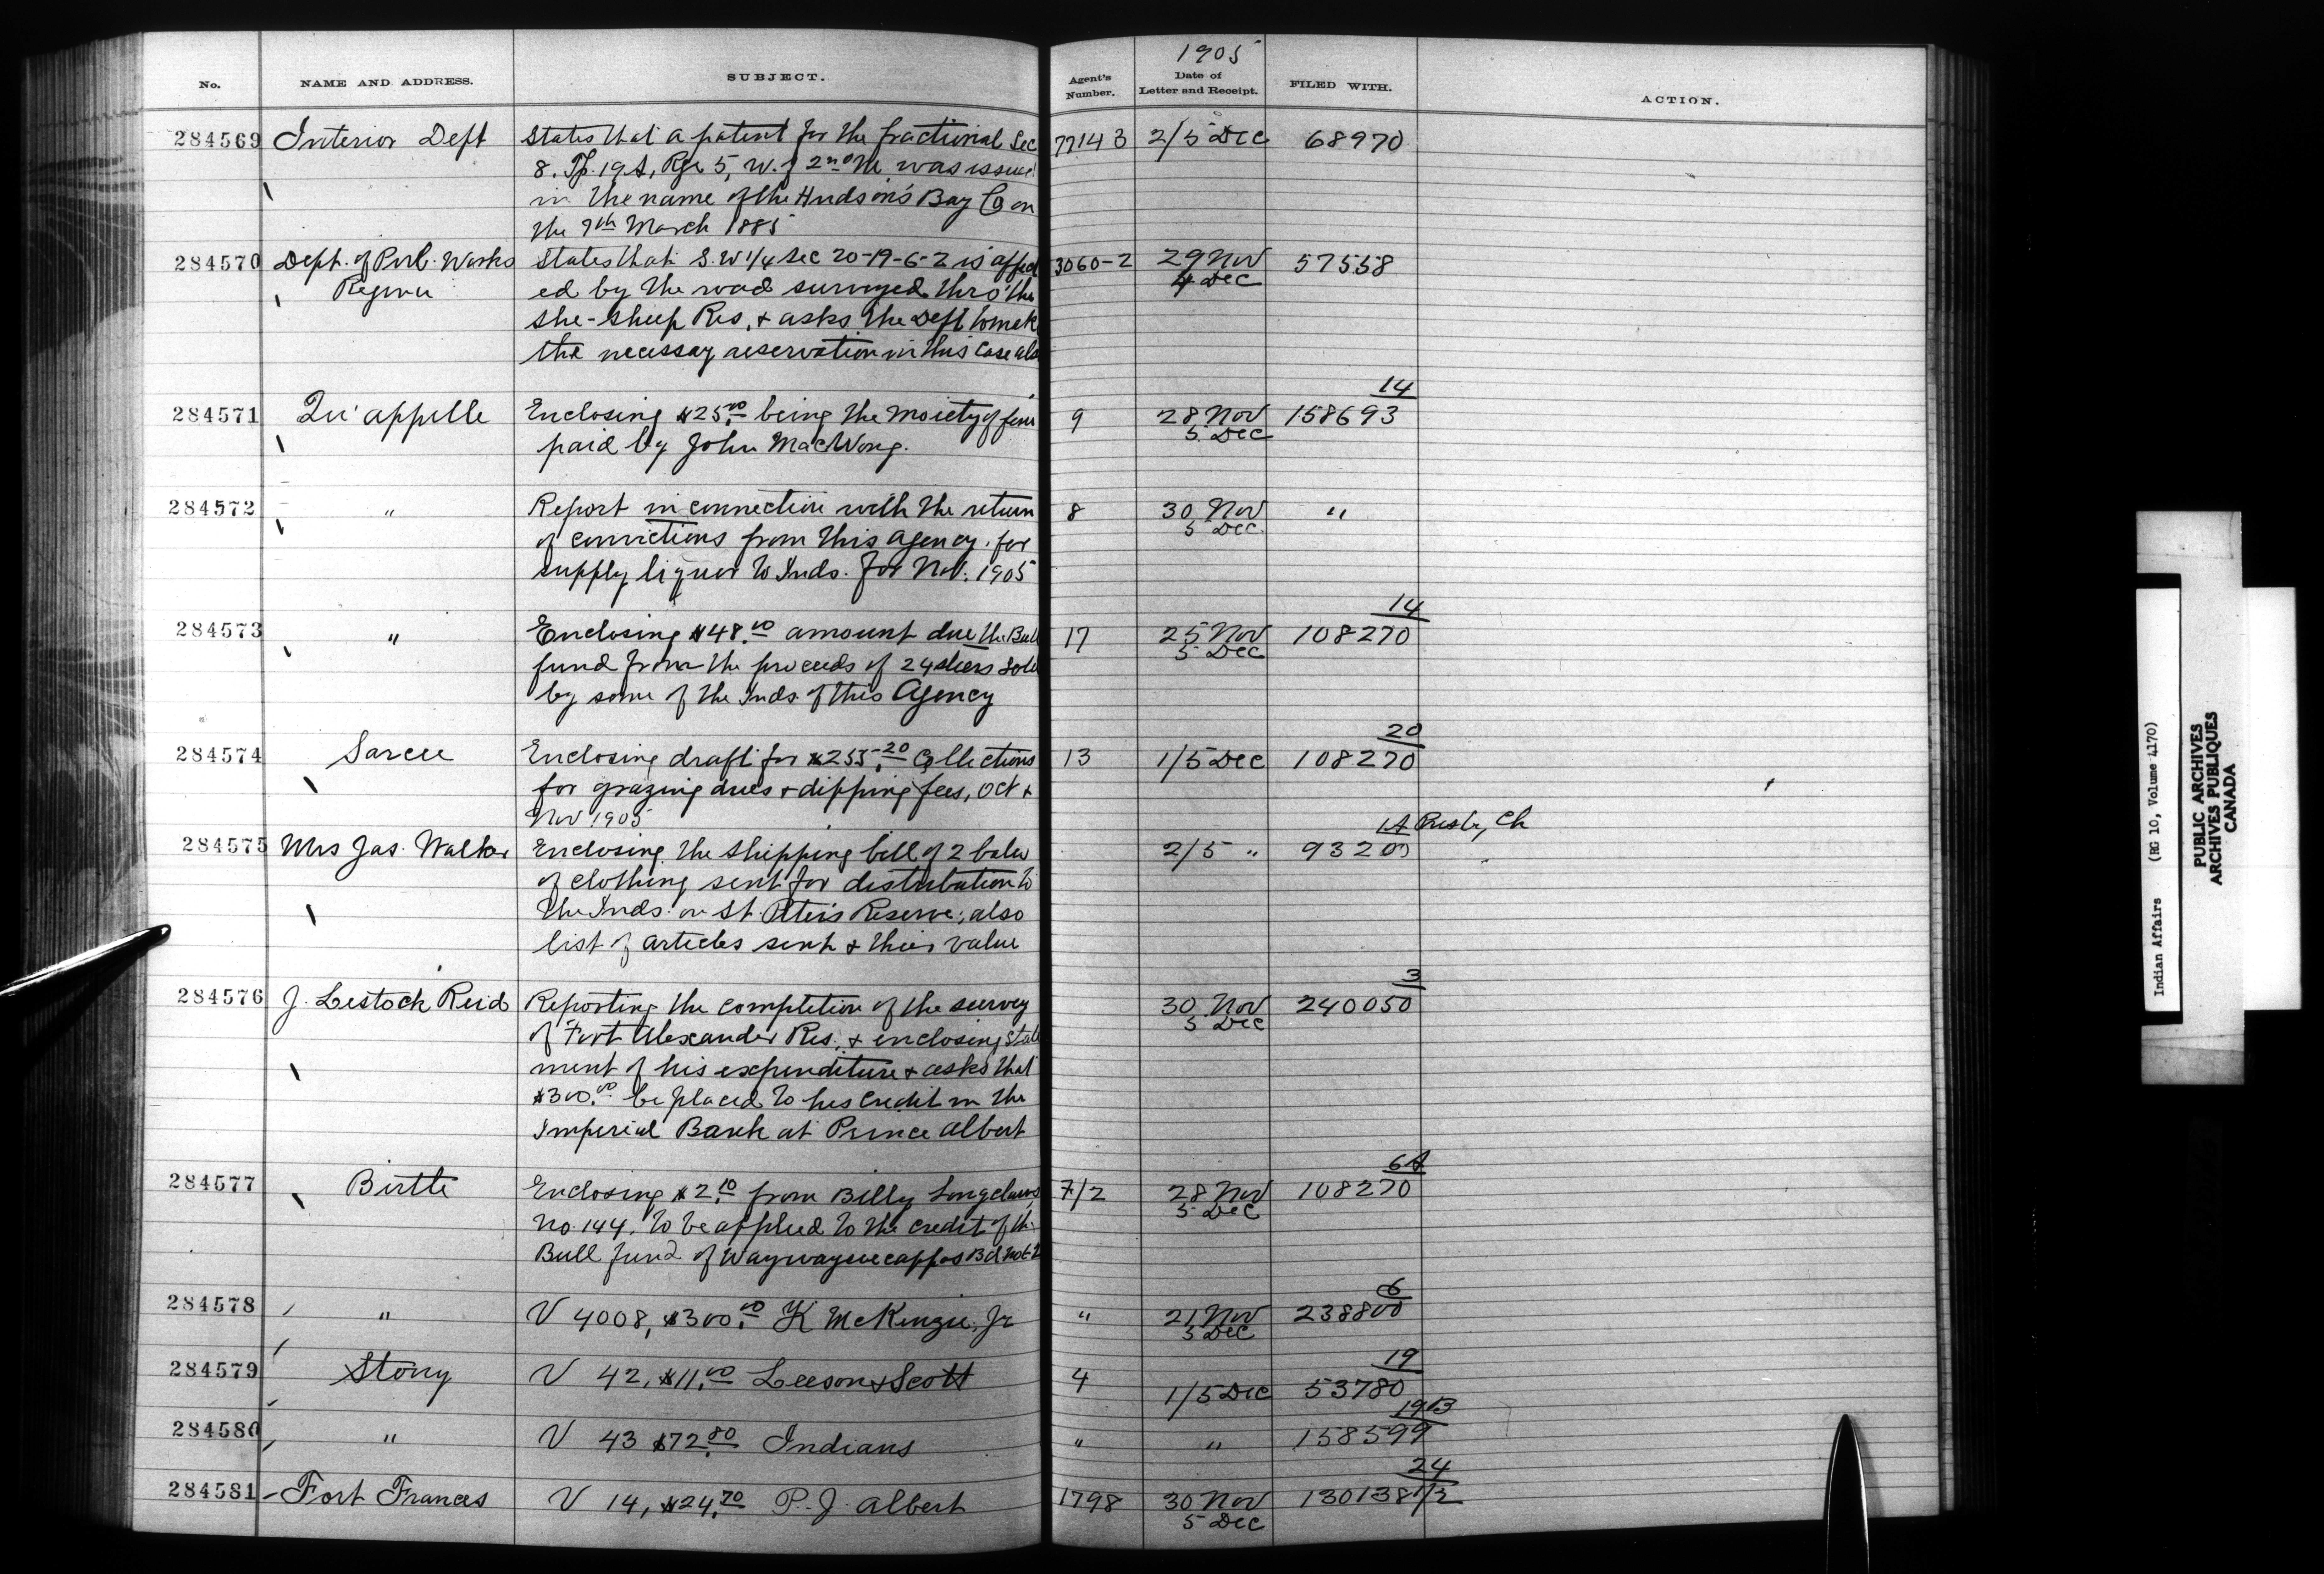 1905
No. NAME AND ADDRESS. SUBJECT. Agent's Number. Date of Letter and Receipt. FILED WITH. ACTION.
284569 Interior Dept States that a patent for the fractional Sec 77143 2/5 Dec 68970
8. Tp. 19A, Rge 5, W. of 2nd M. was issued
in the name of the Hudson's Bay Co on
the 9th March 1885
284570 Dept. of Pub. Works States that S.W 1/4 Sec 20-19-6-2 is affect 3060-2 29 Nov 57558
Regina ed by the road surveyed thro' the 4 Dec
She-Sheep Res, + asks the Dept to make
the necessay reservation in this case also
14
284571 Qu'appelle Enclosing $25.00 being the moiety of fine 9 28 Nov 158693
paid by John MacWong. 5 Dec
284572 " Report in connection with the return 8 30 Nov "
of convictions from this agency for 5 Dec
supply liquor to Inds. for Nov. 1905
14
284573 " Enclosing $48.00 amount due the Bull 17 25 Nov 108270
fund from the proceeds of 24 steers sold 5 Dec
by some of the Inds of this Agency
20
284574 Sarcee Enclosing draft for $255.20 Collections 13 1/5 Dec 108270
for grazing dues + dipping fees, Oct +
Nov 1905
1A Presb, Ch
284575 Mrs Jas. Walker Enclosing the shipping bill of 2 bales 2/5 " 93200
of clothing sent for distribution to
the Inds. on St. Peters Reserve; also
list of articles sent + their value
3
284576 J. Lestock Reid Reporting the completion of the survey 30 Nov 240050
of Fort Alexander Res, + enclosing state 5 Dec
ment of his expenditure + asks that
$300.00 be placed to his credit in the
Imperial Bank at Prince Albert
6A
284577 Birtle Enclosing $2.10 from Billy Longclaws 7/2 28 Nov 108270
No. 144, to be applied to the credit of the 5 Dec
Bull fund of Waywayseecappos Bd
6
284578 " V 4008, $300.00 K McKenzie, Jr " 21 Nov 238800
5 Dec
19
284579 Stony V 42, $11.00 Leeson & Scott 4 1/5 Dec 53780
19B
284580 " V 43 $72.80 Indians " " 158599
24
284581 Fort Frances V 14, $24.70 P. J. Albert 1798 30 Nov 130138 1/2
5 Dec
Indian Affairs (RG 10, Volume 4170)
PUBLIC ARCHIVES
ARCHIVES PUBLIQUES
CANADA